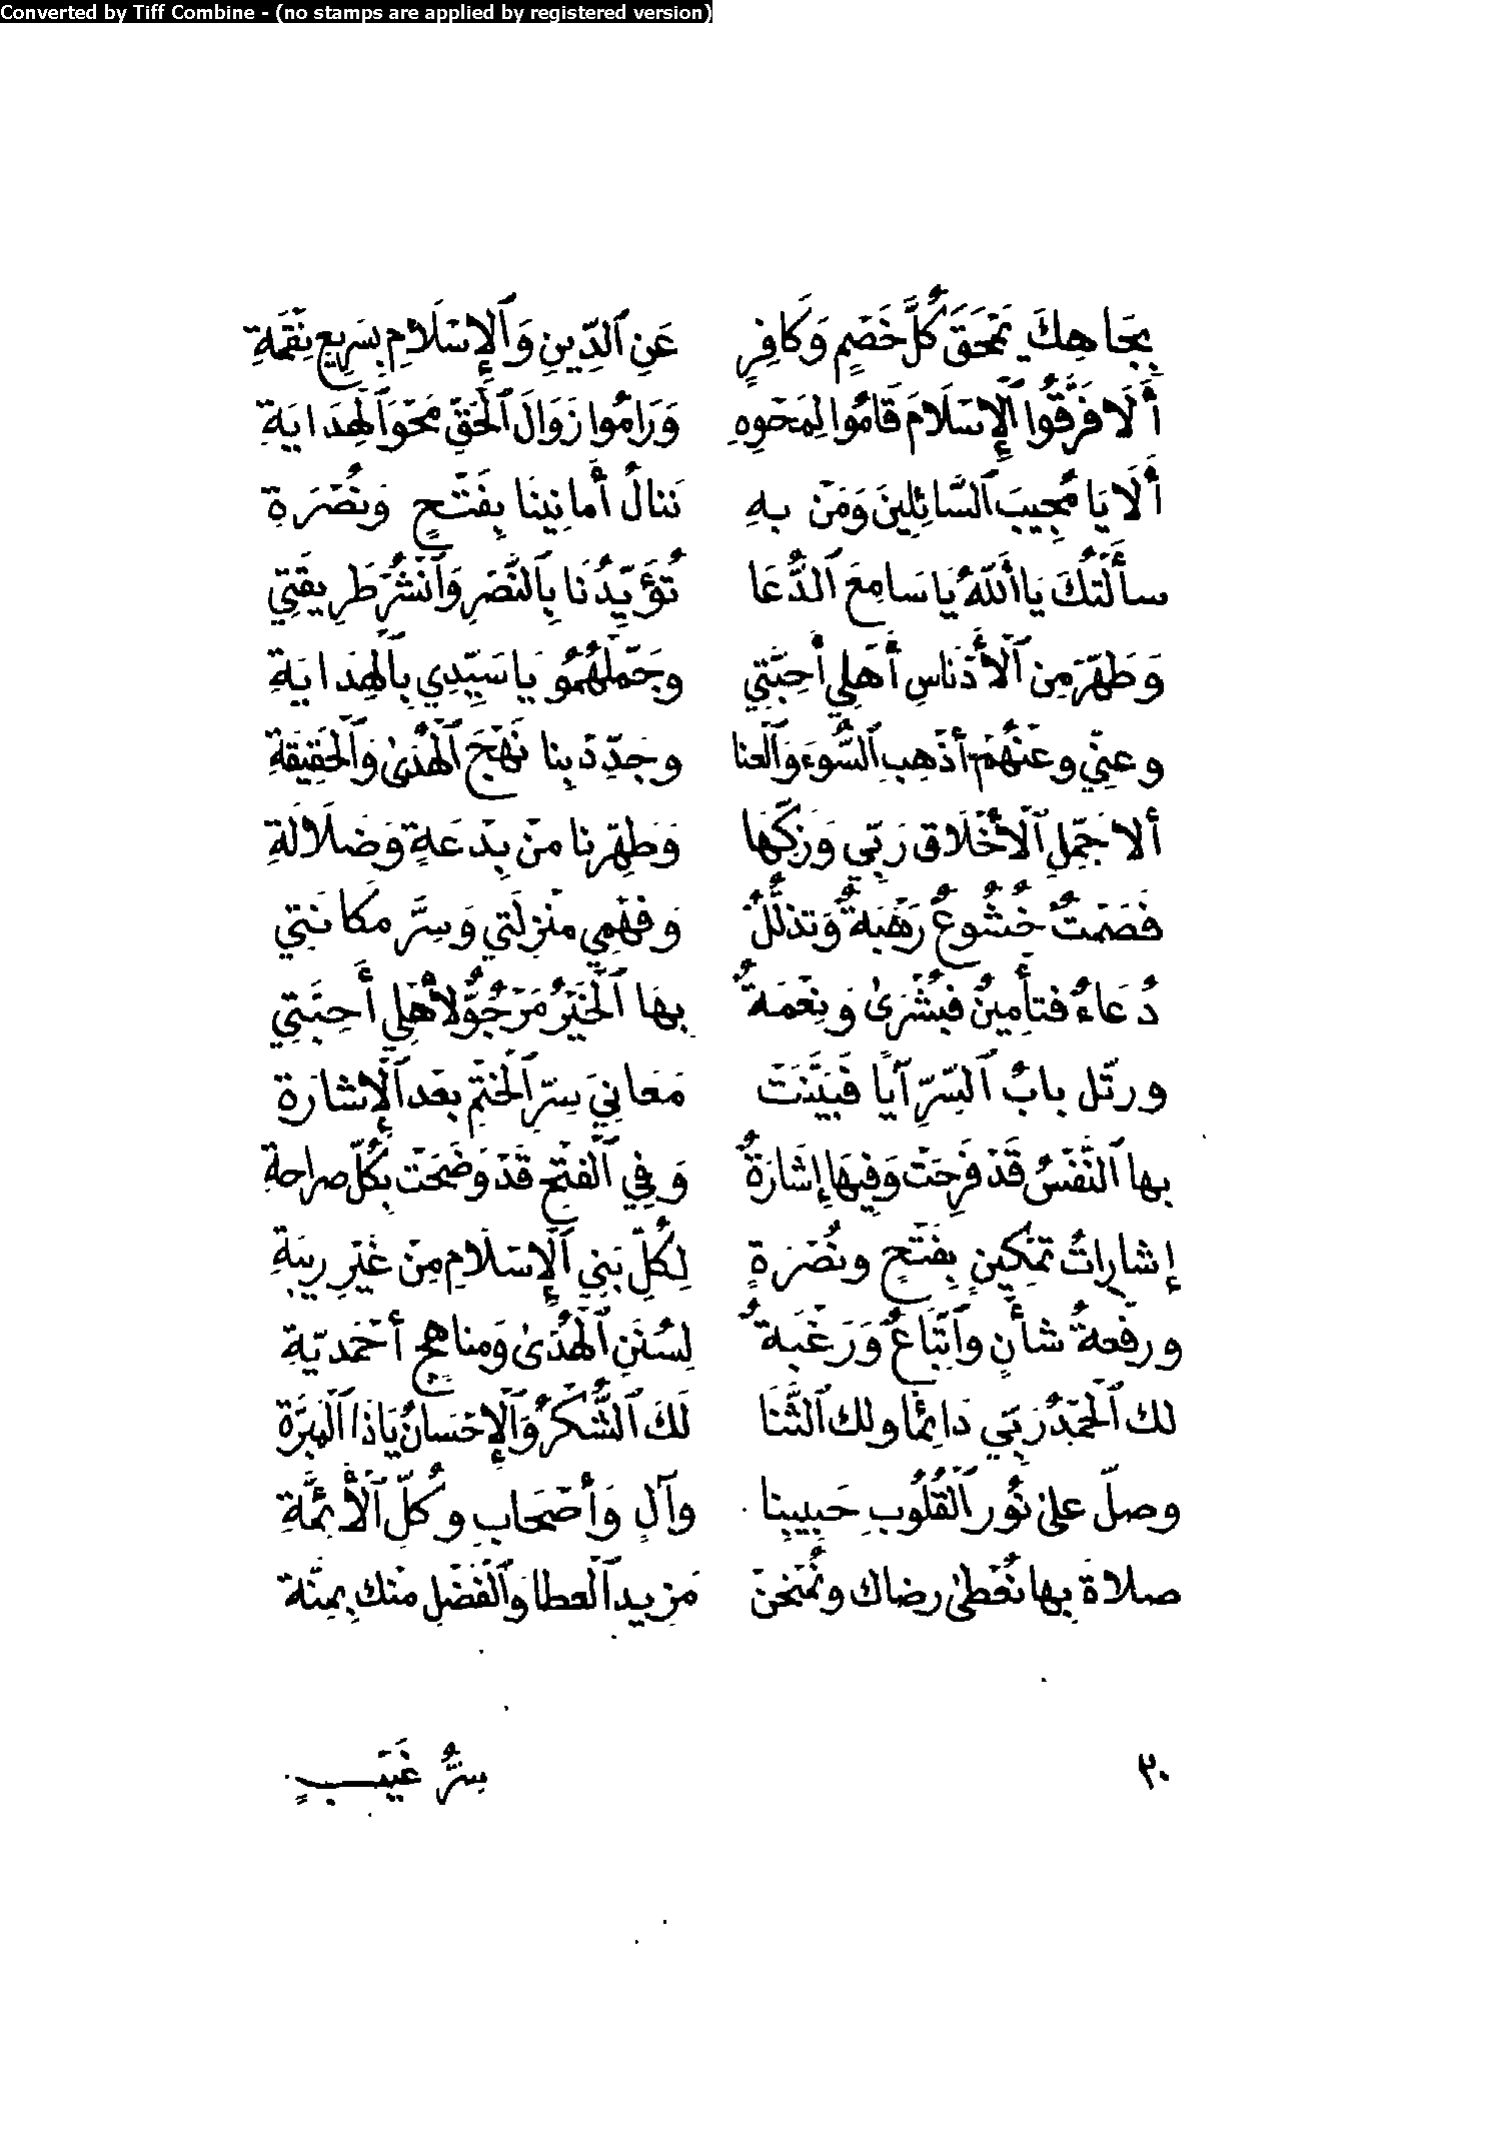 Converted by Tiff Combine - (no stamps are applied by registered version)
بِجَاهِكَ تَمْحَقْ كُلَّ خَصْمٍ وَكَافِرٍ عَنِ ٱلدِّينِ وَٱلْإِسْلَامِ بِسَرِيعِ نِقْمَةِ
أَلَا فَرَّقُوا ٱلْإِسْلَامَ قَامُوا لِمَحْوِهِ وَرَامُوا زَوَالَ ٱلْحَقِّ مَحْوَ ٱلْهِدَايَةِ
أَلَا يَا مُجِيبَ ٱلسَّائِلِينَ وَمَنْ بِهِ نَنَالُ أَمانِينَا بِفَتْحٍ وَنُصْرَةِ
سأَلْتُكَ يَا أَللهُ يَا سَامِعَ ٱلدُّعَا تُؤَيِّدُنَا بِٱلنَّصْرِ وَٱنْشُرْ طَرِيقَتِي
وَطَهِّرْ مِنَ ٱلْأَدْنَاسِ أَهْلِي أَحِبَّتِي وَجَمِّلْهُمُو يَا سَيِّدِي بِٱلْهِدَايَةِ
وعنِّي وعَنْهُمْ أَذْهِبِ ٱلسُّوءَ وَٱلْعنا وجَدِّدْ بِنا نَهْجَ ٱلْهُدَىٰ وَٱلْحَقِيقَةِ
ألا جَمِّلِ ٱلْأَخْلَاقَ رَبِّي وَزَكِّهَا وَطَهِّرْنا مِنْ بِدْعَةٍ وَضَلَالَةِ
فَصَمْتٌ خُشُوعٌ رَهْبَةٌ وَتذلُّلٌ وَفهْمِي منْزِلَتِي وَسِرَّ مكَانَتِي
دُعَاءٌ فتأْمِينٌ فَبُشْرَىٰ وَنِعْمَةٌ بِهَا ٱلْخَيْرُ مَرْجُوٌّ لأَهْلِي أَحِبَّتِي
ورتّل بابُ ٱلسِّرِّ آيًا فَبَيَّنَتْ مَعَانِيَ سِرِّ ٱلْخَتْمِ بعْد ٱلْإِشَارَةِ
بها ٱلنَّفْسُ قَدْ فَرِحَتْ وَفِيهَا إِشَارَةٌ وَفِي ٱلْفَتْحِ قَدْ وَضَحَتْ بِكُلِّ صراحةِ
إشاراتُ تمْكِينٍ بِفَتْحٍ ونُصْرَةٍ لِكُلِّ بَنِي ٱلْإِسْلَامِ مِنْ غَيْرِ رِيبَةِ
ورِفْعةُ شأْنٍ وٱتّبَاعٌ وَرَغْبَةٌ لِسُنَنِ ٱلْهُدَىٰ وَمناهِجٍ أَحْمَديّةِ
لك ٱلْحَمْدُ رَبِّي دَائِمًا ولك ٱلثَّنَا لَكَ ٱلشُّكْرُ وَٱلْإِحْسَانُ يَا ذَا ٱلْمَبَرَّةِ
وصلِّ علىٰ نُور ٱلْقُلُوبِ حَبِيبِنا وآلٍ وَأَصْحَابٍ وكُلِّ ٱلْأَئِمَّةِ
صلاةً بها نُعْطىٰ رضاك ونُمْنحَنْ مَزِيد ٱلْعطا وَٱلْفَضْلِ منْك بِمنَّةِ
٢٠ سِرُّ غَيْبٍ